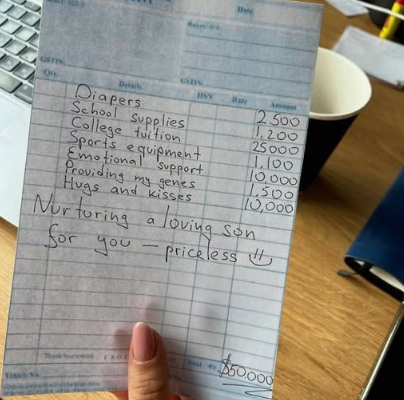 Date
GSTIN:
GSTIN:
Qty. Details HSN Rate Amount
Diapers 2,500
School supplies 1,200
College tuition 25000
Sports equipment 1,100
Emotional support 10,000
Providing my genes 1,500
Hugs and kisses 10,000
Nurturing a loving son
for you – priceless
$50.000